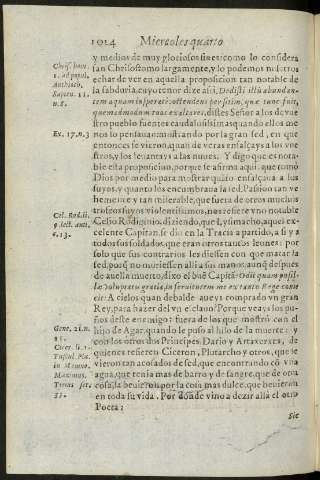 1014 Miercoles quarto
Chris. hom.
1. ad popul.
Antioch.
Sapien. 11.
n. 8.
y medios de muy gloriosos fines: como lo considera
san Chrisostomo largamente, y lo podemos nosotros
echar de ver en aquella proposicion tan notable de
la sabduria, cuyo tenor dize assi, Dedisti illis abundan-
tem aquam insperatè: ostendens per sitim, quæ tunc fuit,
quemadmodum tuos exaltares, distes Señor a los de vue
stro pueblo fuentes caudalosissimas quando ellos me
Ex. 17. n. 3
nos lo pensauan: mostrando por la gran sed, en que
entonces se vieron, quan de veras ensalçays a los vue
stros, y los leuantays a las nuues. Y digo que es nota-
ble esta proposicion, porque se afirma aqui, que tomò
Dios por medio para mostrar quãto ensalçaua a los
suyos, y quanto los encumbraua la sed. Passion tan ve
hemente y tan miserable, que fuera de otros muchos
Cel. Rod. li.
9. lect. anti.
c. 13.
triosfeos suyos violentissimos, nos refiere vno notable
Celio Rodiginio, diziendo, que Lysimacho, aquel ex-
celente Capitan se dio en la Tracia a partido, a si y a
todos sus soldados, que eran otros tantos leones: por
solo que sus contrarios les diessen con que matar la
sed, porq̃ no muriessen allí a sus manos, aunq̃ despues
de auella muerto, dixo el buẽ Capitã: O dij quàm pusil-
la voluptatis gratia, in seruitutem me ex tanto Rege conie
ci? A cielos quan debalde aueys comprado vn gran
Rey, para hazer del vn esclauo? Porque veays los pu-
ños deste enemigo: fuera de los que mostrò con el
Gene. 21. n.
15.
hijo de Agar, quando le puso al hilo de la muerte: y
con los otros dos Principes, Dario y Artaxerxes, de
Cicer. li. 5.
Tuscul. Plu.
in Memno.
Maximus.
Tirius ser.
quienes refieren Ciceron, Plutarcho y otros, que se
vieron tan acosados de sed, que encontrando cõ vna
agua, que tenia mas de barro y de sangre, que de otra
cosa, la beuieron por la cosa mas dulce, que beuieron
en toda su vida. Por donde vino a dezir allà el otro
Poeta:
Sic